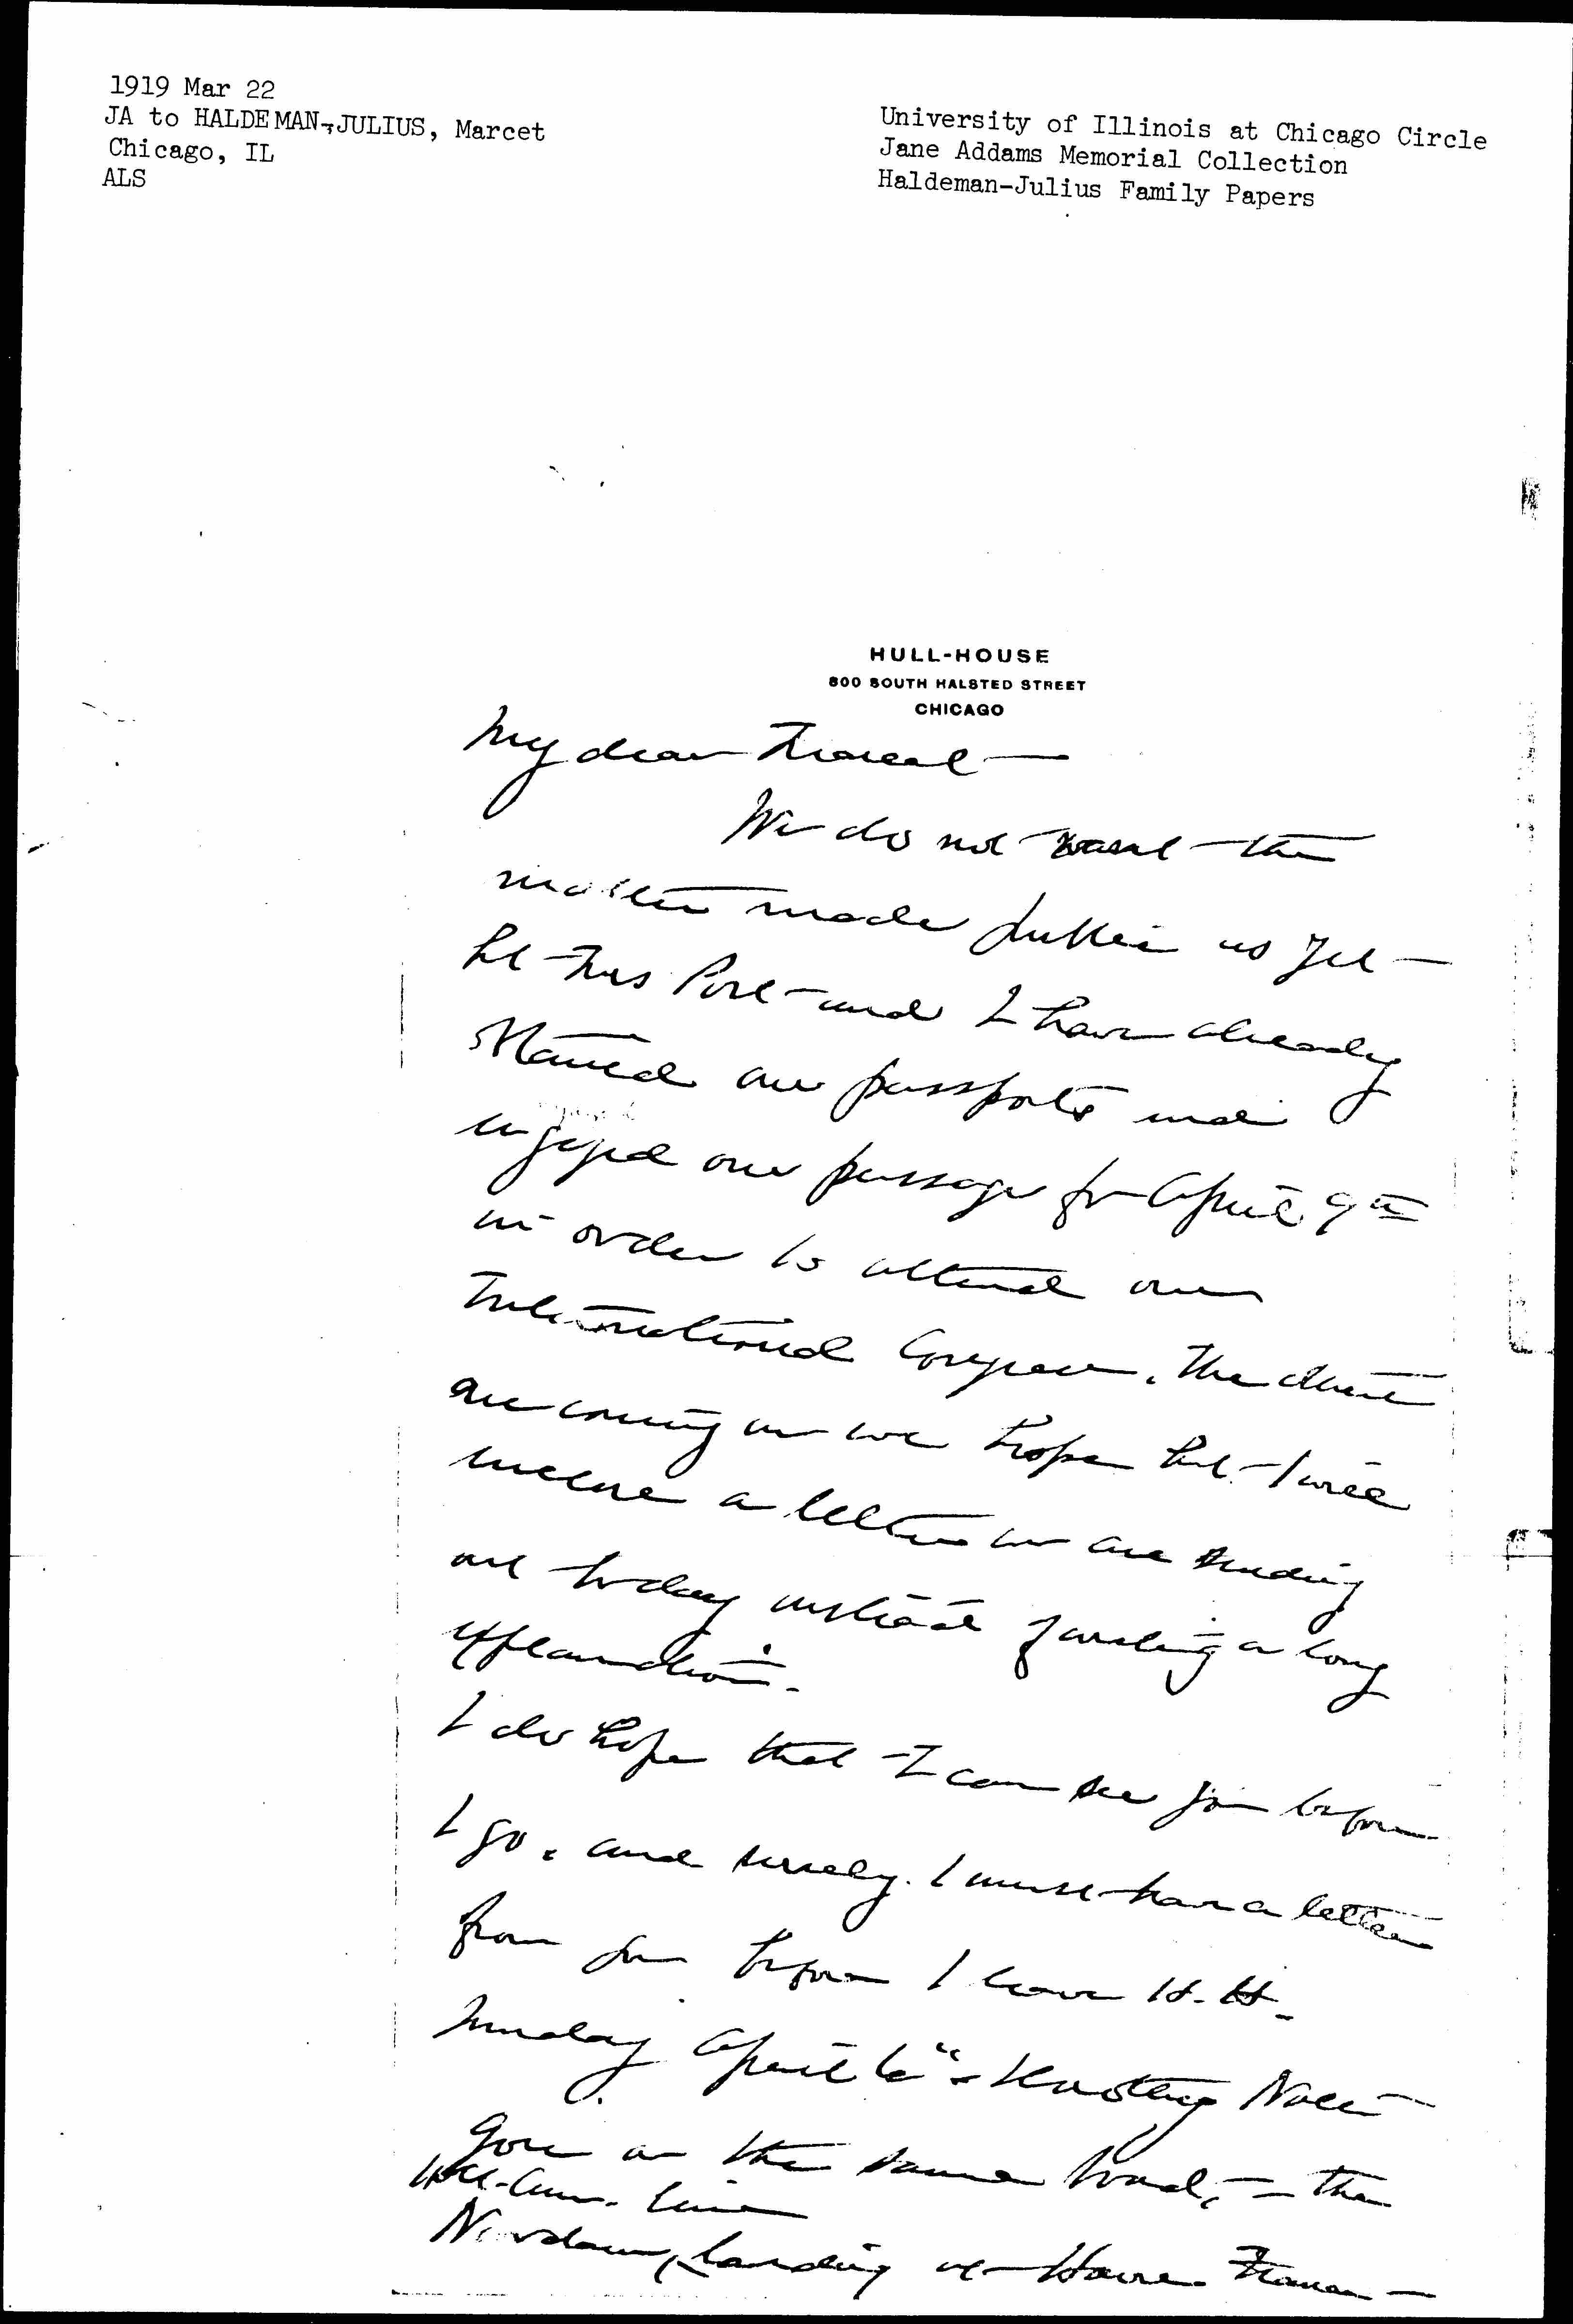 1919 Mar 22
JA to HALDEMAN-JULIUS, Marcet
Chicago, IL
ALS
University of Illinois at Chicago Circle
Jane Addams Memorial Collection
Haldeman-Julius Family Papers
HULL-HOUSE
800 SOUTH HALSTED STREET
CHICAGO
My dear Marcet —
We do not want the
matter made public as yet —
but Mrs Post and I have already
obtained our passports and
engaged our passage for April 9th
in order to attend our
International Congress. The
are coming as we hope but I will
enclose a letter we are sending
out today instead of writing a long
explanation.
I do hope that I can see you before
I go, and surely I must have a letter
from you before I leave H.H.
Sunday April 6"
goes on the same boat, — the
Holl-Am. Line
Noordam, landing at Havre France —